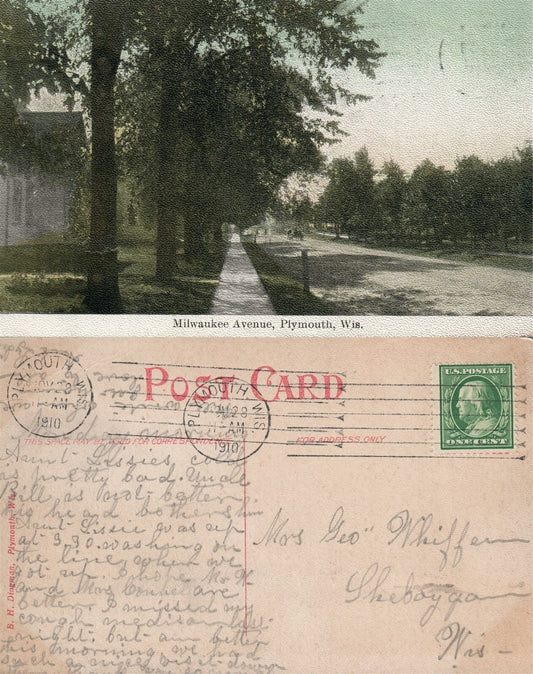 Milwaukee Avenue, Plymouth, Wis.
PLYMOUTH WIS.
NOV 28
AM
1910
POST CARD
PLYMOUTH WIS.
28
AM
1910
U.S. POSTAGE
ONE CENT
THIS SPACE MAY BE USED FOR CORRESPONDENCE
FOR ADDRESS ONLY
B. H. Dingman, Plymouth, Wis.
Aunt Lissies cold
is pretty bad. Uncle
Bill is not better
his head bothers him
Aunt Lissie was up
at 3.30 washing on
the line when we
got up. I hope Mr W
and Mrs are
better. I missed my
cough medison last
night. but am better
this morning we had
such a nice visit down
Mrs Geo" Whiffen
Sheboygan
Wis-